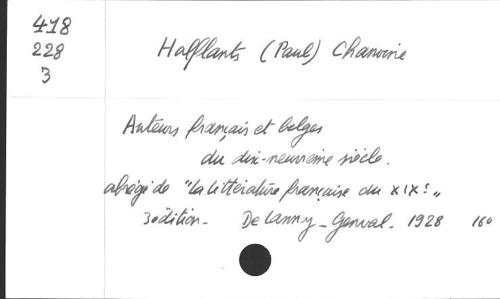 418
228
3
Halflants (Paul) Chanoine
Auteurs français et belges
du dix-neuvième siècle.
abrégé de "la littérature française du XIXe"
3e édition - De Lanny - Genval - 1928 160